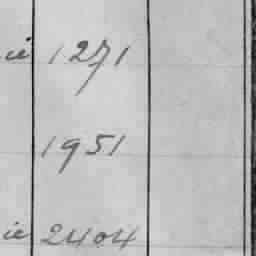 ié 1271
1951
ié 2404